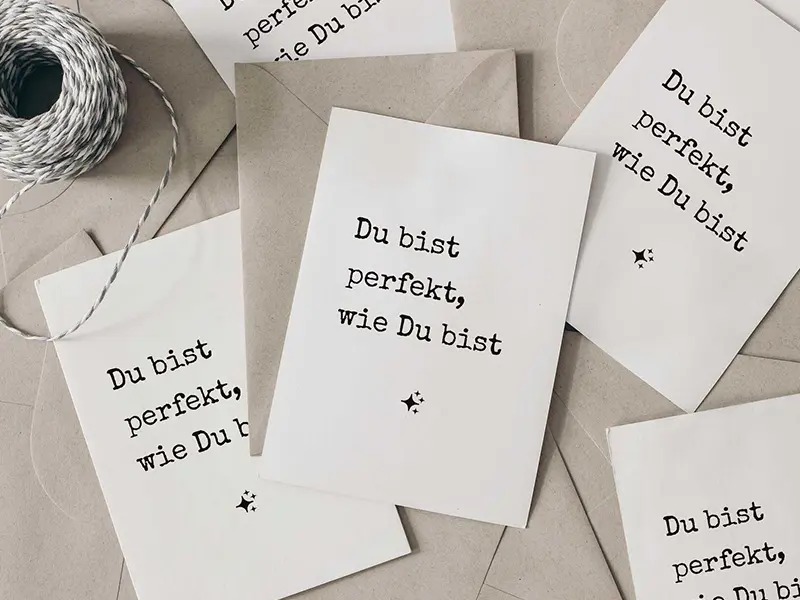 Du bis
perfekt,
wie Du bis
Du bist
perfekt,
wie Du bist
Du bist
perfekt,
wie Du bist
Du bist
perfekt,
wie Du b
Du bist
perfekt,
wie Du bi